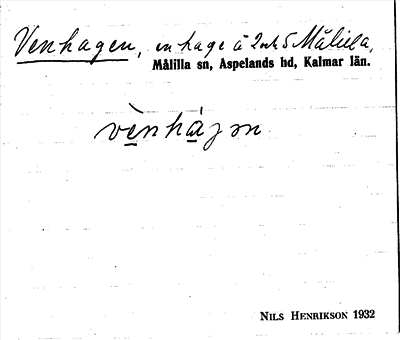 Venhagen, en hage å 2 och 5 Målilla,
Målilla sn, Aspelands hd, Kalmar län.
vènhágən
NILS HENRIKSON 1932